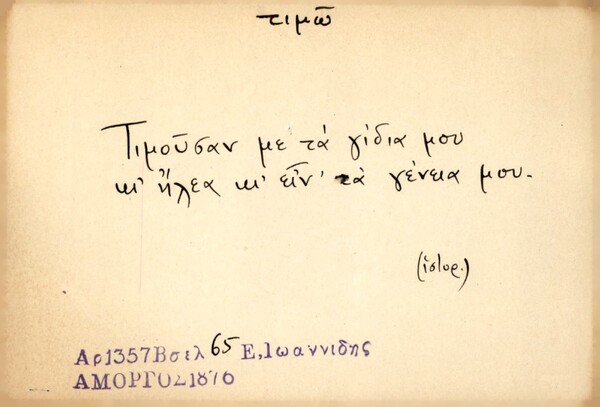 τιμῶ
Τιμοῦσαν με τὰ γίδια μου
κι' ἤλεα κι' εἶν' τὰ γένεια μου.
(ἱστορ.)
Αρ1357Βσελ 65 Ε,Ιωαννιδης
ΑΜΟΡΓΟΣ1876